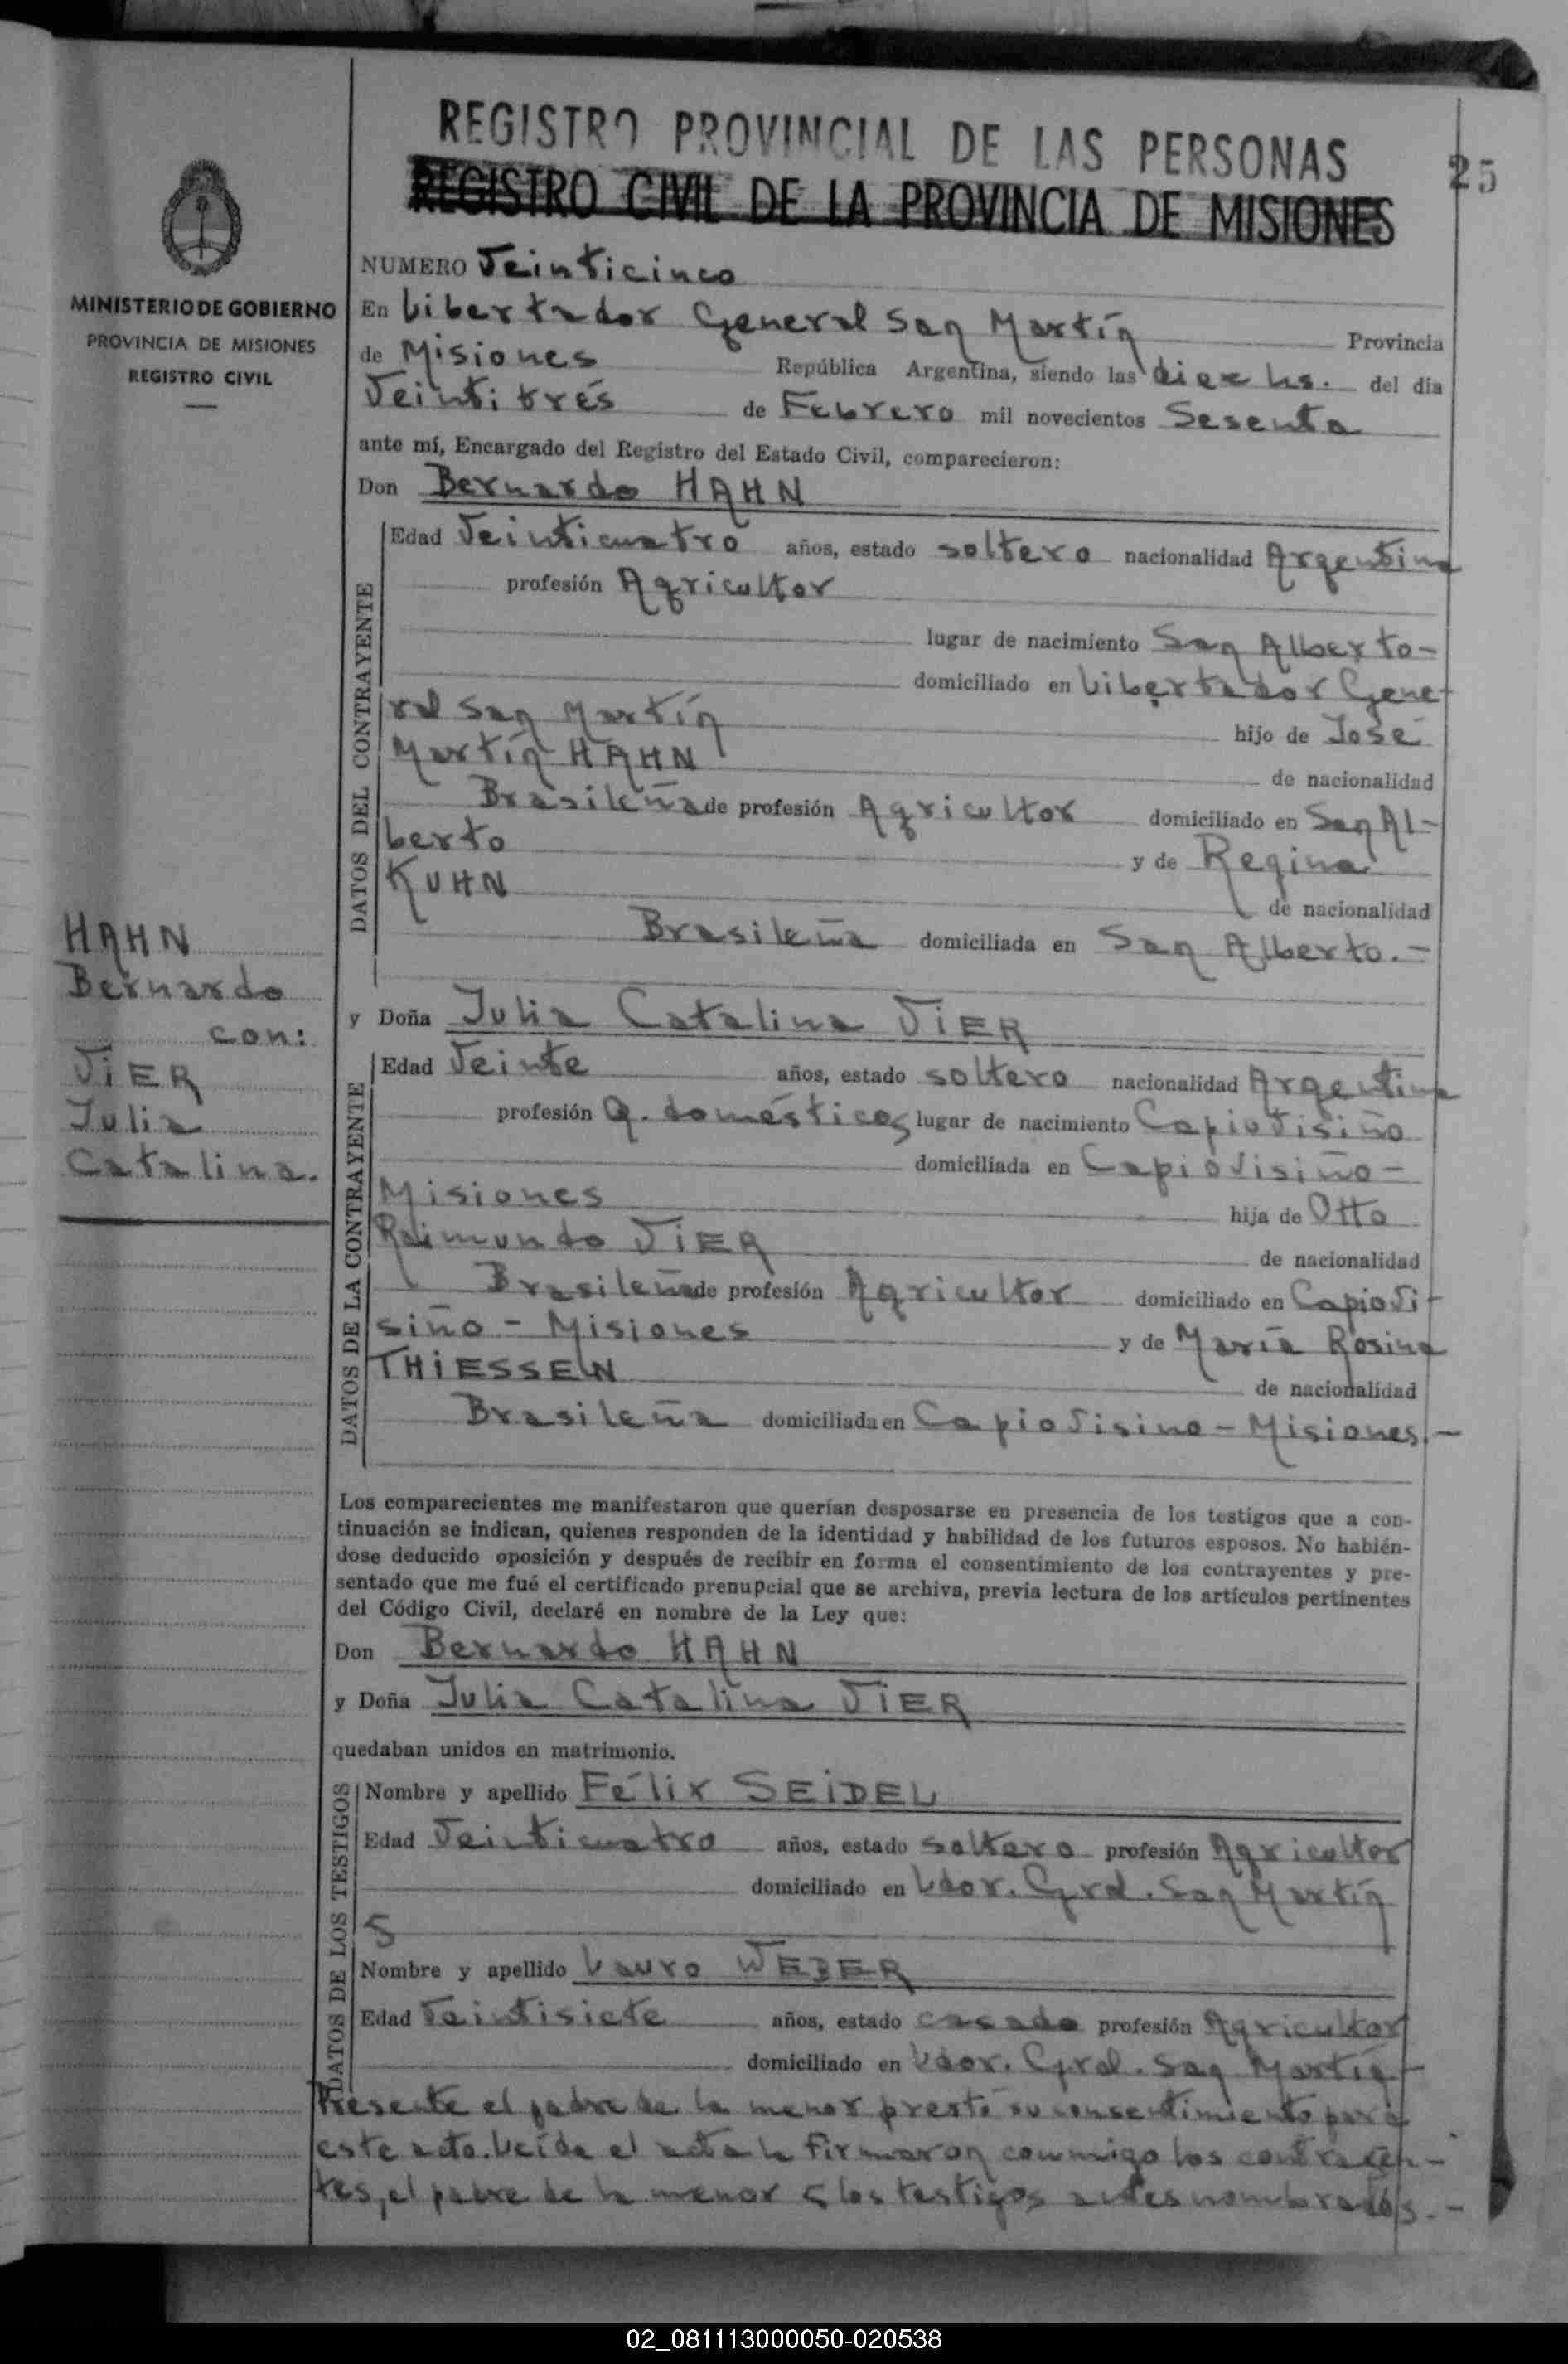 REGISTRO PROVINCIAL DE LAS PERSONAS
25
REGISTRO CIVIL DE LA PROVINCIA DE MISIONES
MINISTERIO DE GOBIERNO
PROVINCIA DE MISIONES
REGISTRO CIVIL
NUMERO Veinticinco
En Libertador General San Martín Provincia
de Misiones República Argentina, siendo las diez hs. del día
Veintitrés de Febrero mil novecientos Sesenta
ante mí, Encargado del Registro del Estado Civil, comparecieron:
Don Bernardo HAHN
DATOS DEL CONTRAYENTE
Edad Veinticuatro años, estado soltero nacionalidad Argentina
profesión Agricultor
lugar de nacimiento San Alberto-
domiciliado en Libertador Gene-
ral San Martín hijo de José
Martín HAHN de nacionalidad
Brasileña de profesión Agricultor domiciliado en San Al-
berto y de Regina
KUHN de nacionalidad
Brasileña domiciliada en San Alberto.-
HAHN
Bernardo
con:
ViER
Julia
Catalina.
y Doña Julia Catalina ViER
DATOS DE LA CONTRAYENTE
Edad Veinte años, estado soltero nacionalidad Argentina
profesión Q. domésticos lugar de nacimiento Capiovisiño
domiciliada en Capiovisiño-
Misiones hija de Otto
Raimundo ViER de nacionalidad
Brasileña de profesión Agricultor domiciliado en Capiovi-
siño - Misiones y de María Rosina
THiESSEN de nacionalidad
Brasileña domiciliada en Capiovisino - Misiones.-
Los comparecientes me manifestaron que querían desposarse en presencia de los testigos que a con-
tinuación se indican, quienes responden de la identidad y habilidad de los futuros esposos. No habién-
dose deducido oposición y después de recibir en forma el consentimiento de los contrayentes y pre-
sentado que me fué el certificado prenupcial que se archiva, previa lectura de los artículos pertinentes
del Código Civil, declaré en nombre de la Ley que:
Don Bernardo HAHN
y Doña Julia Catalina ViER
quedaban unidos en matrimonio.
DATOS DE LOS TESTIGOS
Nombre y apellido Félix SEiDEL
Edad Veinticuatro años, estado soltero profesión Agricultor
domiciliado en Ldor. Gral. San Martín
y
Nombre y apellido Lauro WEBER
Edad Veintisiete años, estado casado profesión Agricultor
domiciliado en Ldor. Gral. San Martín-
Presente el padre de la menor prestó su consentimiento para
este acto. Leída el acta la firmaron conmigo los contrayen-
tes, el padre de la menor y los testigos antes nombrados.-
02_081113000050-020538